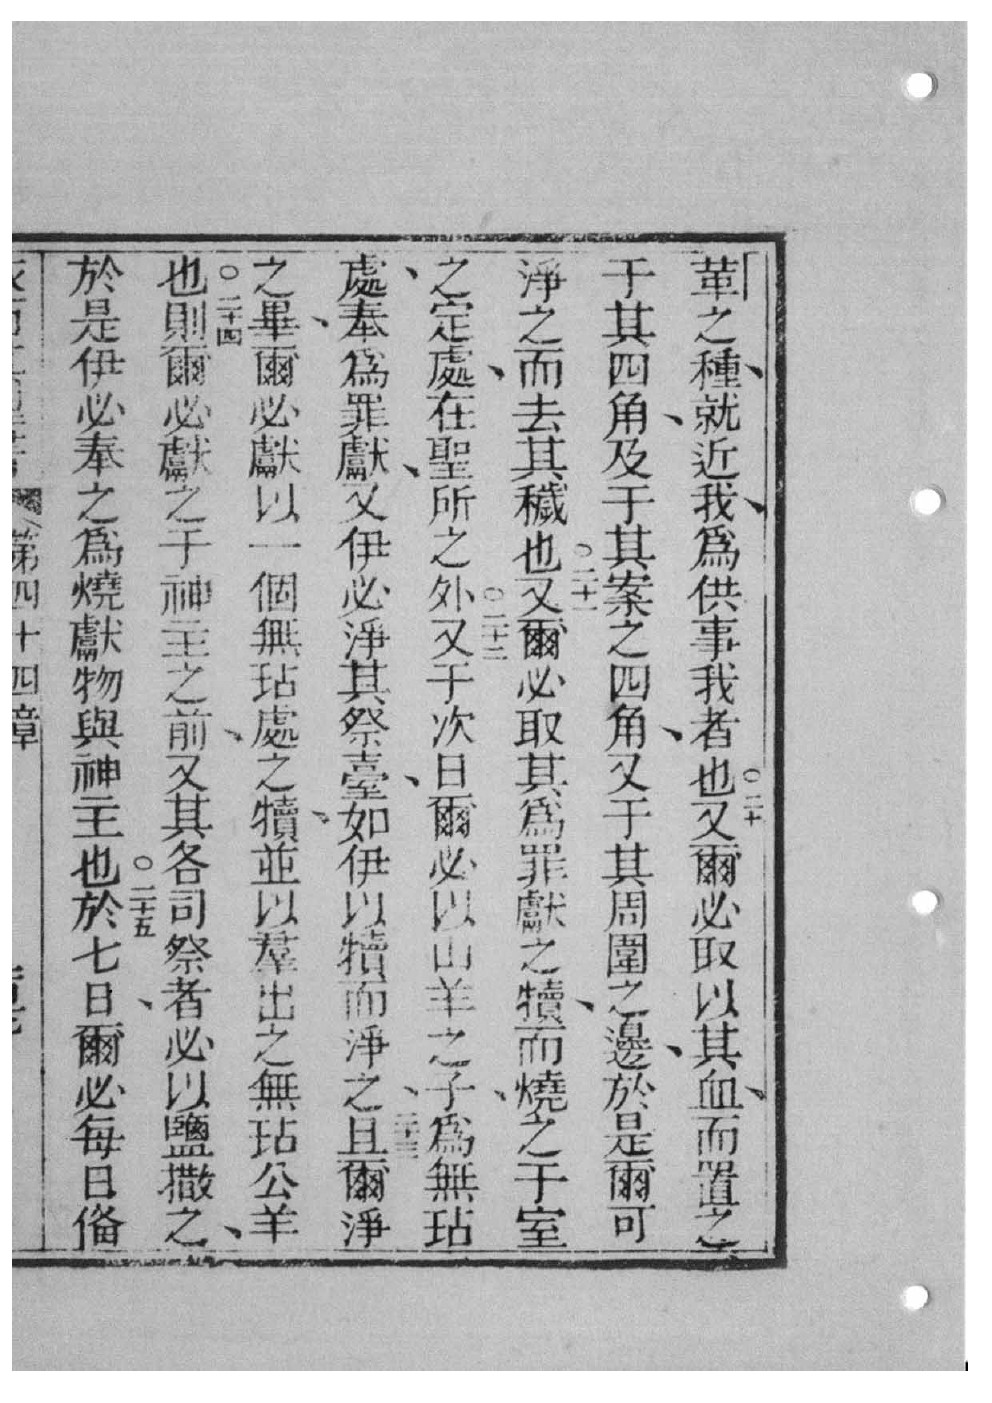 革之種、就近我、爲供事我者也○二十又爾必取以其血、而置之、
于其四角、及于其案之四角、又于其周圍之邊、於是爾可
淨之而去其穢也○二十一又爾必取其爲罪獻之犢、而燒之于室
之定處、在聖所之外○二十二又于次日爾必以山羊之子、爲無玷
處、奉爲罪獻、又伊必淨其祭臺、如伊以犢而淨之、二十三且爾淨
之畢、爾必獻以一個無玷處之犢、並以羣出之無玷公羊
也○二十四則爾必獻之于神主之前、又其各司祭者必以鹽撒之、
於是伊必奉之爲燒獻物與神主也○二十五於七日、爾必每日俻
第四十四章